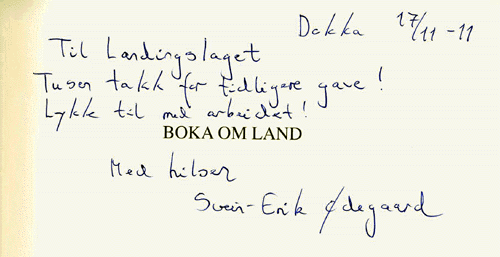 Dokka 17/11-11
Til Landingslaget
Tusen takk for tidligere gave!
Lykk til med arbeidet!
BOKA OM LAND
Med hilsen
Svein-Erik Ødegaard